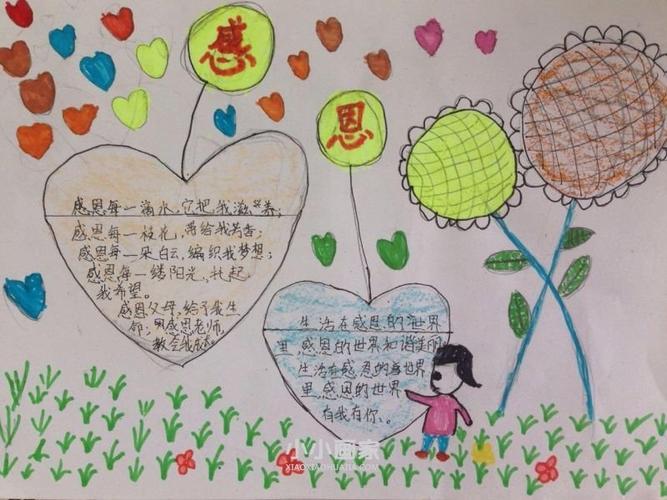 感
恩
感恩每一滴水，它把我滋养；
感恩每一枝花，带给我芳香；
感恩每一朵白云，编织我梦想；
感恩每一缕阳光，托起
我希望。
感恩父母，给予我生
命；感恩老师，
教会我成
生活在感恩的世界
里，感恩的世界和谐美丽
生活在感恩的世界
里，感恩的世界
有我有你。
小小画家
XIAOXIAOHUAJIA.COM